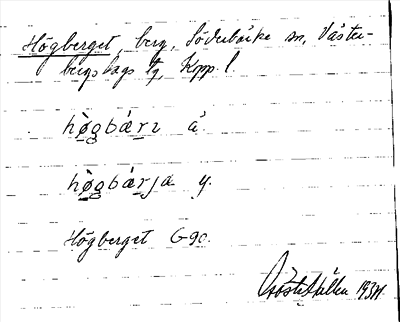 Högberget, berg, Söderbärke sn, Väster-
bergslags tg, Kopp. l.
hø̀gbærı å.
hø̀gbærja y.
Högberget G90.
Gösta Hållén 1934